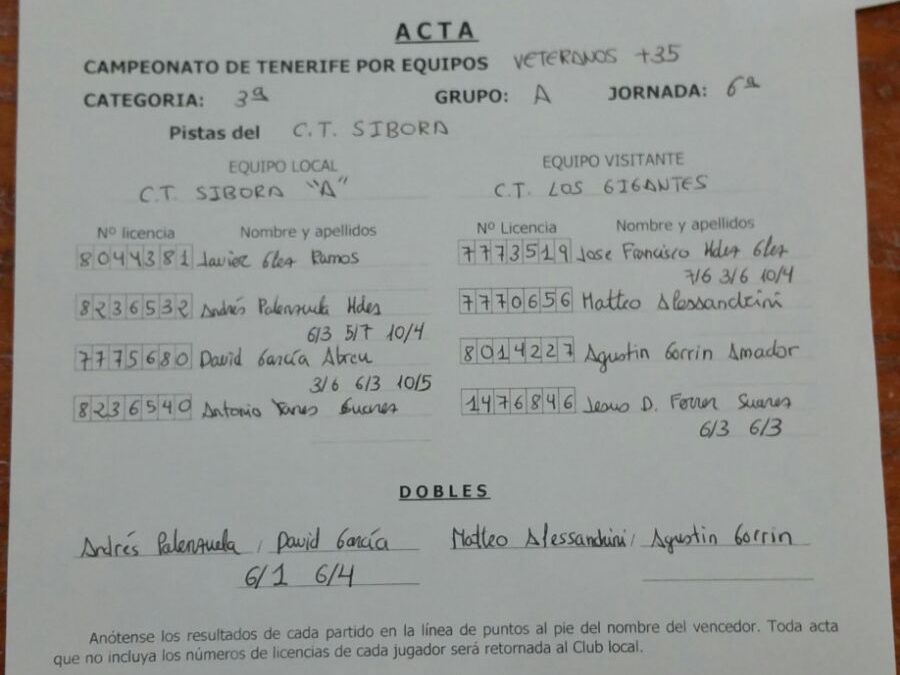 ACTA
CAMPEONATO DE TENERIFE POR EQUIPOS VETERANOS +35
CATEGORIA: 3ª GRUPO: A JORNADA: 6ª
Pistas del C.T. SIBORA
EQUIPO LOCAL EQUIPO VISITANTE
C.T. SIBORA "A" C.T. LOS GIGANTES
Nº licencia Nombre y apellidos Nº Licencia Nombre y apellidos
8044381 Javier Glez Ramos 7773519 Jose Francisco Hdez Glez
7/6 3/6 10/4
8236532 Andrés Palenzuela Hdez 7770656 Matteo Alessandrini
6/3 5/7 10/4
7775680 David García Abreu 8014227 Agustin Gorrin Amador
3/6 6/3 10/5
8236540 Antonio Suarez 1476846 Jesus D. Forrer Suarez
6/3 6/3
DOBLES
Andrés Palenzuela / David García Matteo Alessandrini / Agustin Gorrin
6/1 6/4
Anótense los resultados de cada partido en la línea de puntos al pie del nombre del vencedor. Toda acta
que no incluya los números de licencias de cada jugador será retornada al Club local.